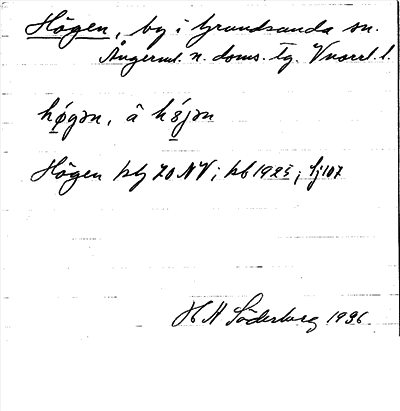 Högen, by i Grundsunda sn.
Ångerml. n. doms. tg. Vnorrl. l.
hø̂gən, â hø̂jən
Högen kbl 70 NV; kb 1925; Sj 107
H A Söderberg 1936.